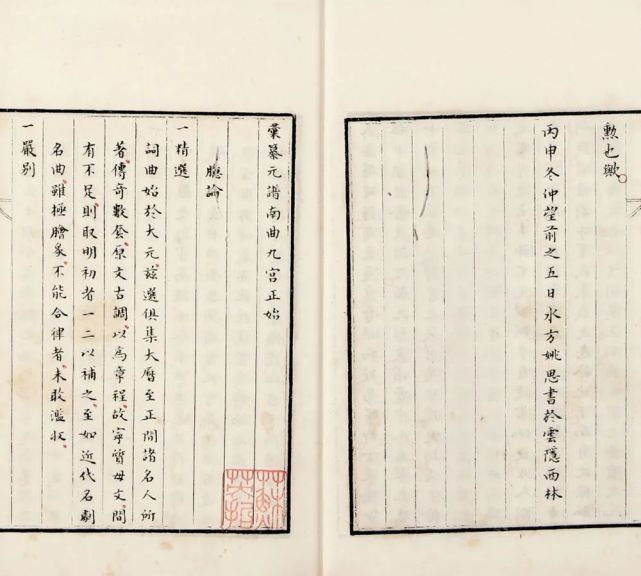 勲也歟
丙申冬仲望前之五日水方姚思書於雲隱西林
彙纂元譜南曲九宮正始
臆論
一精選
詞曲始於大元兹選俱集大曆至正間諸名人所
著傳奇數套原文古調以為章程故寧質毋文間
有不足則取明初者一二以補之至如近代名劇
名曲雖極膾炙不能合律者未敢濫収
一嚴別